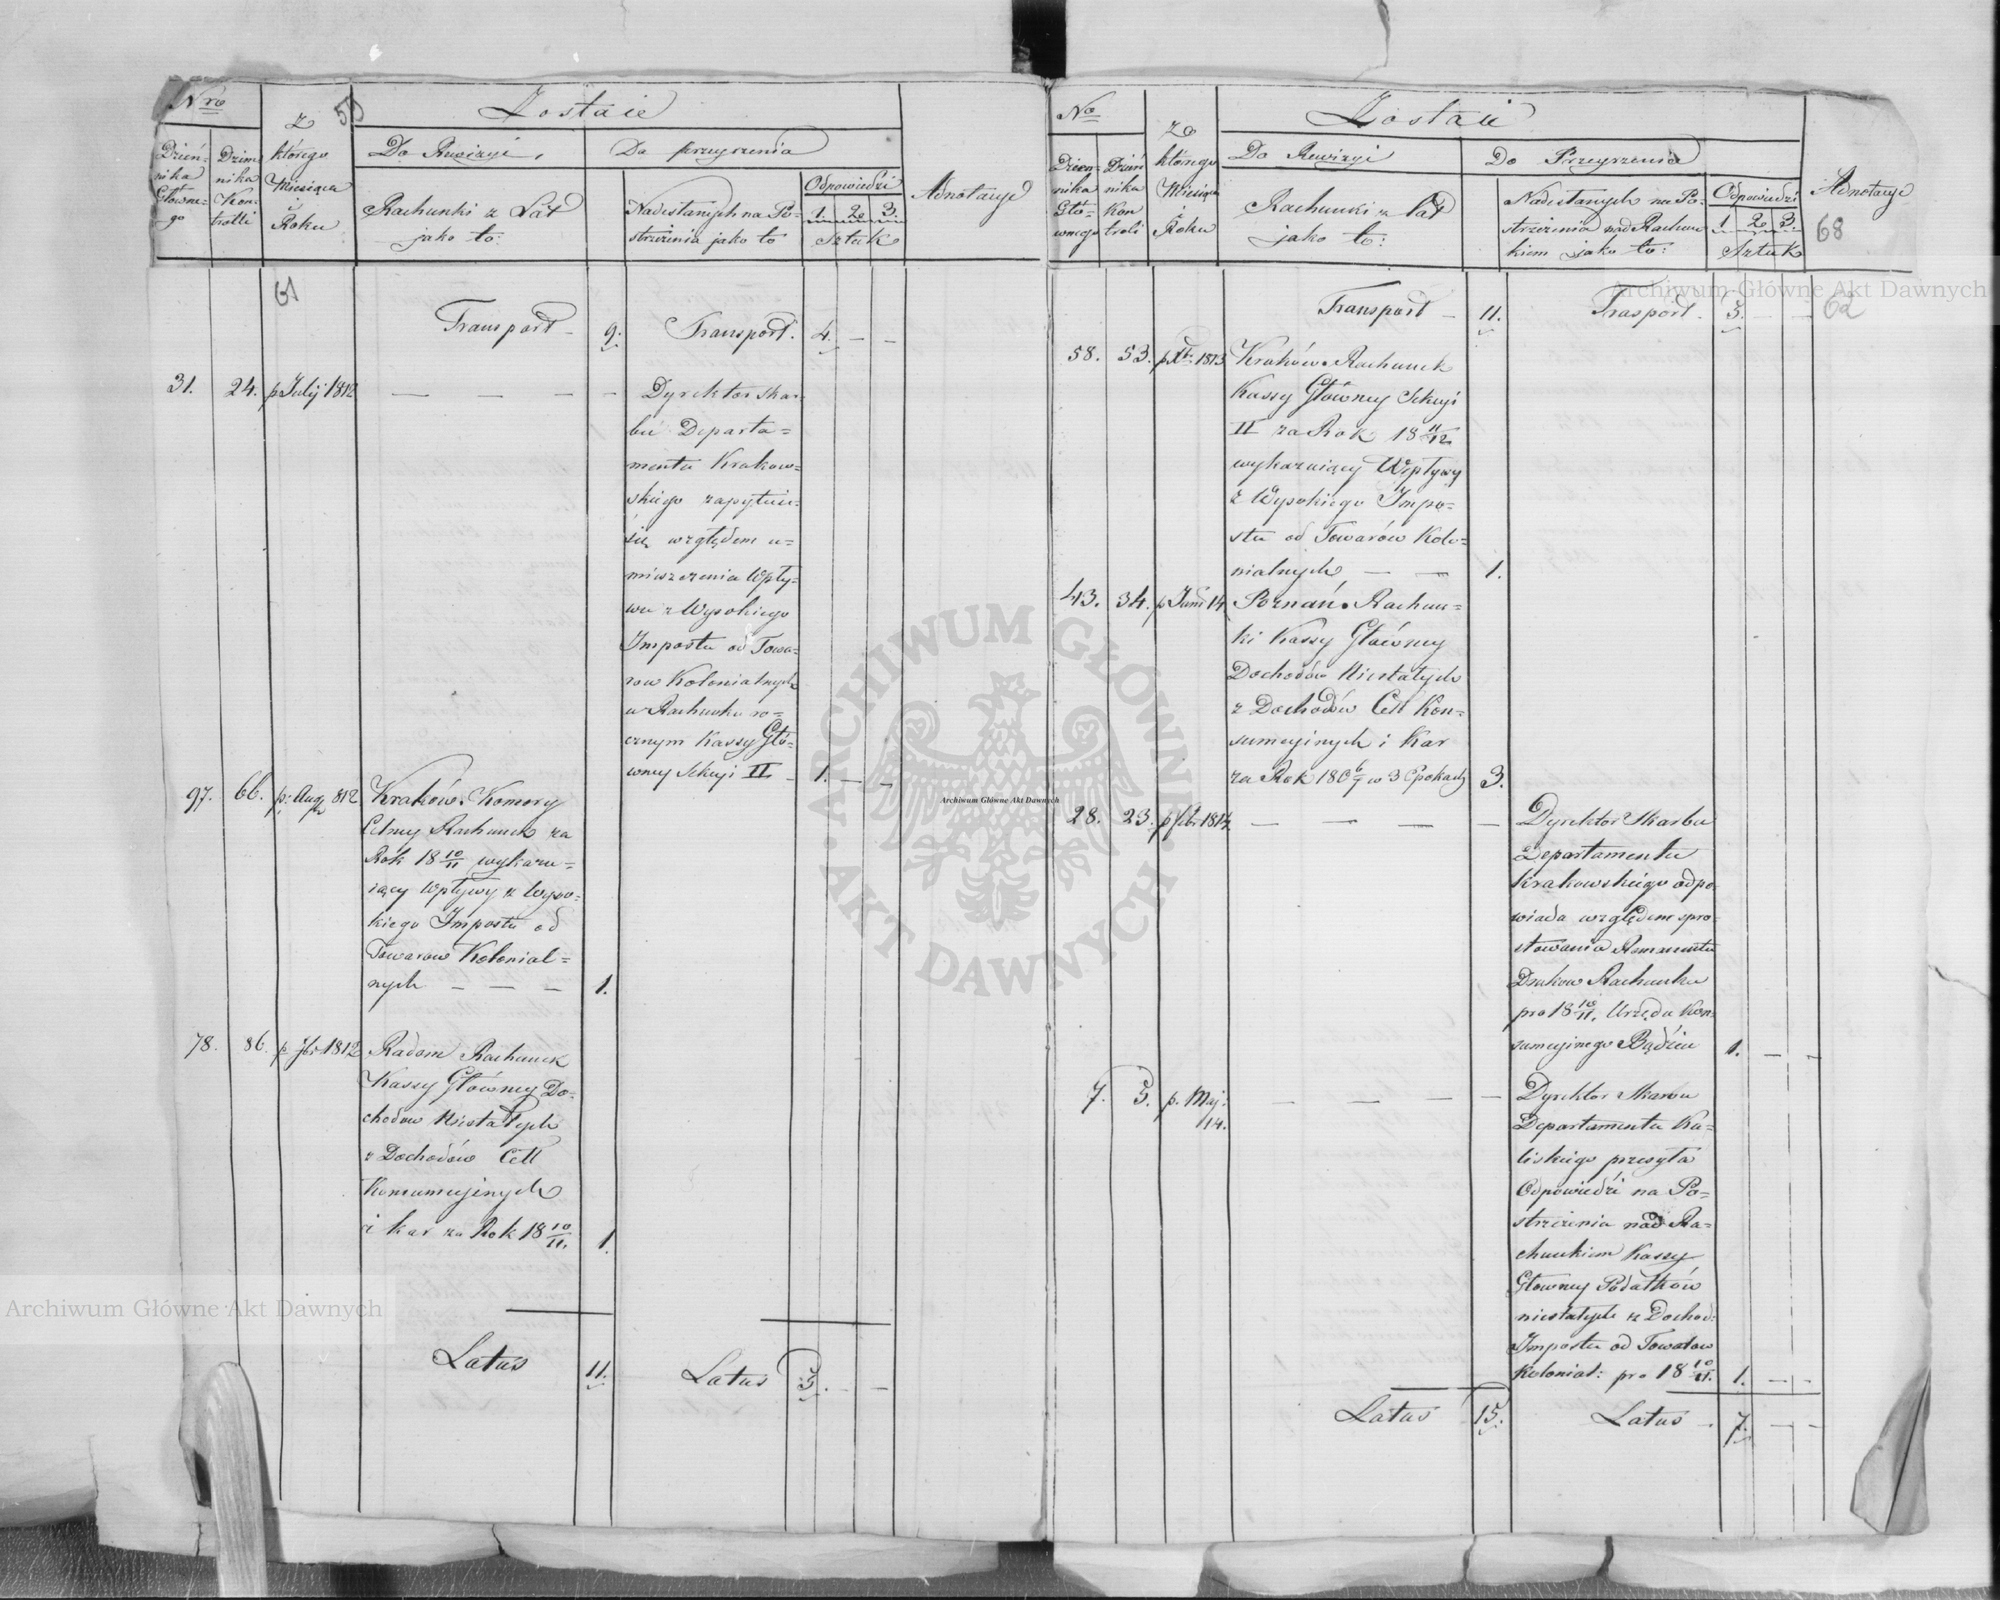 Nro
59
Zostaie
Dzien-
nika
Główne-
go
Dzien
nika
Kon-
trolli
z
którego
Miesiąca
i
Roku
Do Rewizyi,
Rachunki z Lat
jako to:
Do przeyrzenia
Nadesłanych na Po-
strzeżenia jako to
Odpowiedzi
1. 2. 3.
Sztuk
Adnotacye
61
Transport 9. Transport. 4. — —
31. 24. p July 1812 — — — — Dyrektor Skar-
bu Departa-
mentu Krakow-
skiego zapytuie
się względem u-
mieszczenia Wpły-
wu z Wysokiego
Impostu od Towa-
row Kolonialnych
w Rachunku ro-
cznym Kassy Głó-
wney Sekcyi II — 1. — —
97. 66. p. Aug 812 Kraków. Komory
Celney Rachunek za
Rok 18 10/11 wykazu-
iący Wpływy z Wyso-
kiego Impostu od
Towarow Kolonial-
nych — — — 1.
78. 86. p 7br 1812 Radom Rachunek
Kassy Główney Do-
chodow Niestałych
z Dochodów Cell
Konsumcyinych
i kar za Rok 18 10/11. 1.
Latus 11. Latus 5. — —
No
Zostaie
Dzien-
nika
Głó-
wnego
Dzień
nika
Kon
troli
ze
którego
Miesiąca
i
Roku
Do Rewizyi
Rachunki z Lat
jako to:
Do Przeyrzenia
Nadesłanych na Po-
strzeżenia nad Rachun
kiem jako to:
Odpowiedzi
1. 2. 3.
Sztuk
Adnotacye
68
62
Transport — 11. Trasport. 5. — —
58. 53. p Xbr 1813 Kraków. Rachunek
Kassy Główney Sekcyi
II za Rok 18 11/12
wykazuiący Wpływy
z Wysokiego Impo-
stu od Towarów Kolo-
nialnych — — 1.
43. 34. p Juni 14 Poznań. Rachun-
ki Kassy Główney
Dochodów Niestałych
z Dochodów Cell Kon-
sumcyinych i Kar
za Rok 180 6/7 w 3 Epokach 3.
28. 23. p febr 1814. — — — — Dyrektor Skarbu
Departamentu
Krakowskiego odpo-
wiada względem spro-
stowania Remanentu
Druków Rachunku
pro 18 10/11. Urzędu Kon-
sumcyinego Będzin 1. — —
7. 5. p. Maj. 14. — — — — Dyrektor Skarbu
Departamentu Ka-
liskiego przesyła
Odpowiedzi na Po-
strzeżenia nad Ra-
chunkiem Kassy
Głowney Podatków
niestałych z Dochod:
Impostu od Towarow
Kolonial: pro 18 10/11. 1. — —
Latus 15. Latus — 7. — —
Archiwum Główne Akt Dawnych
ARCHIWUM GŁÓWNE
· AKT DAWNYCH ·
Archiwum Główne Akt Dawnych
Archiwum Główne Akt Dawnych